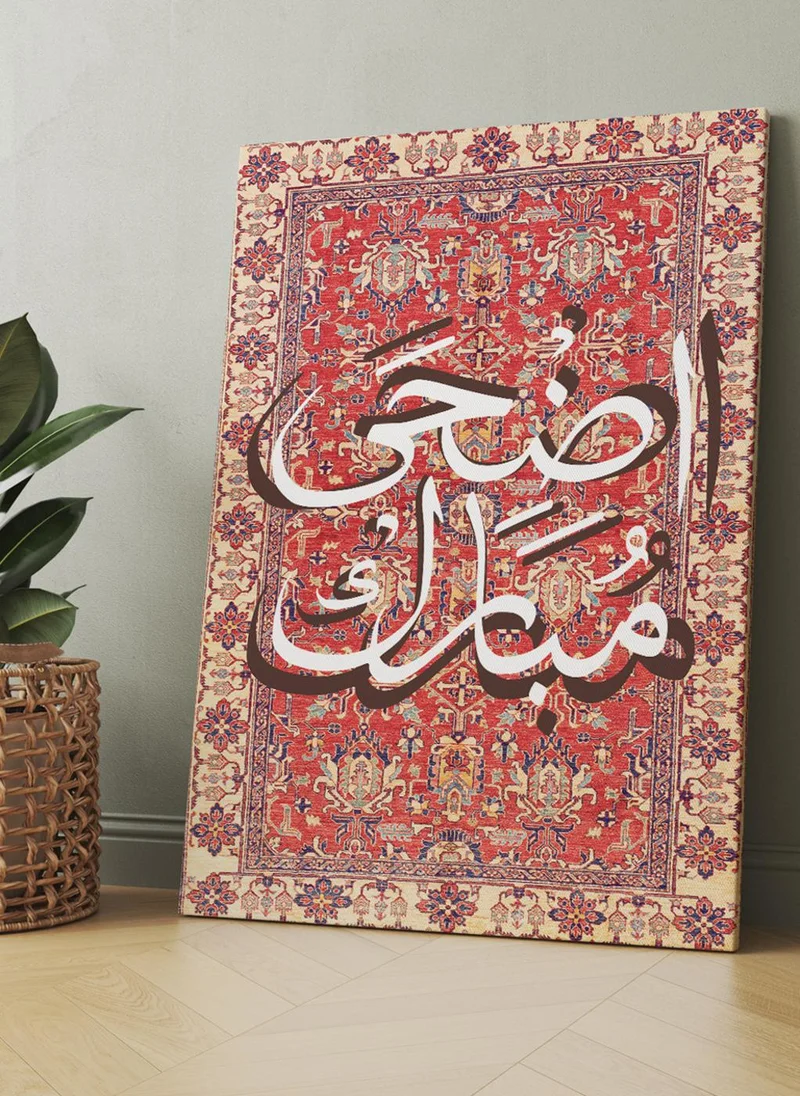 اضُحَى
مُبَارك